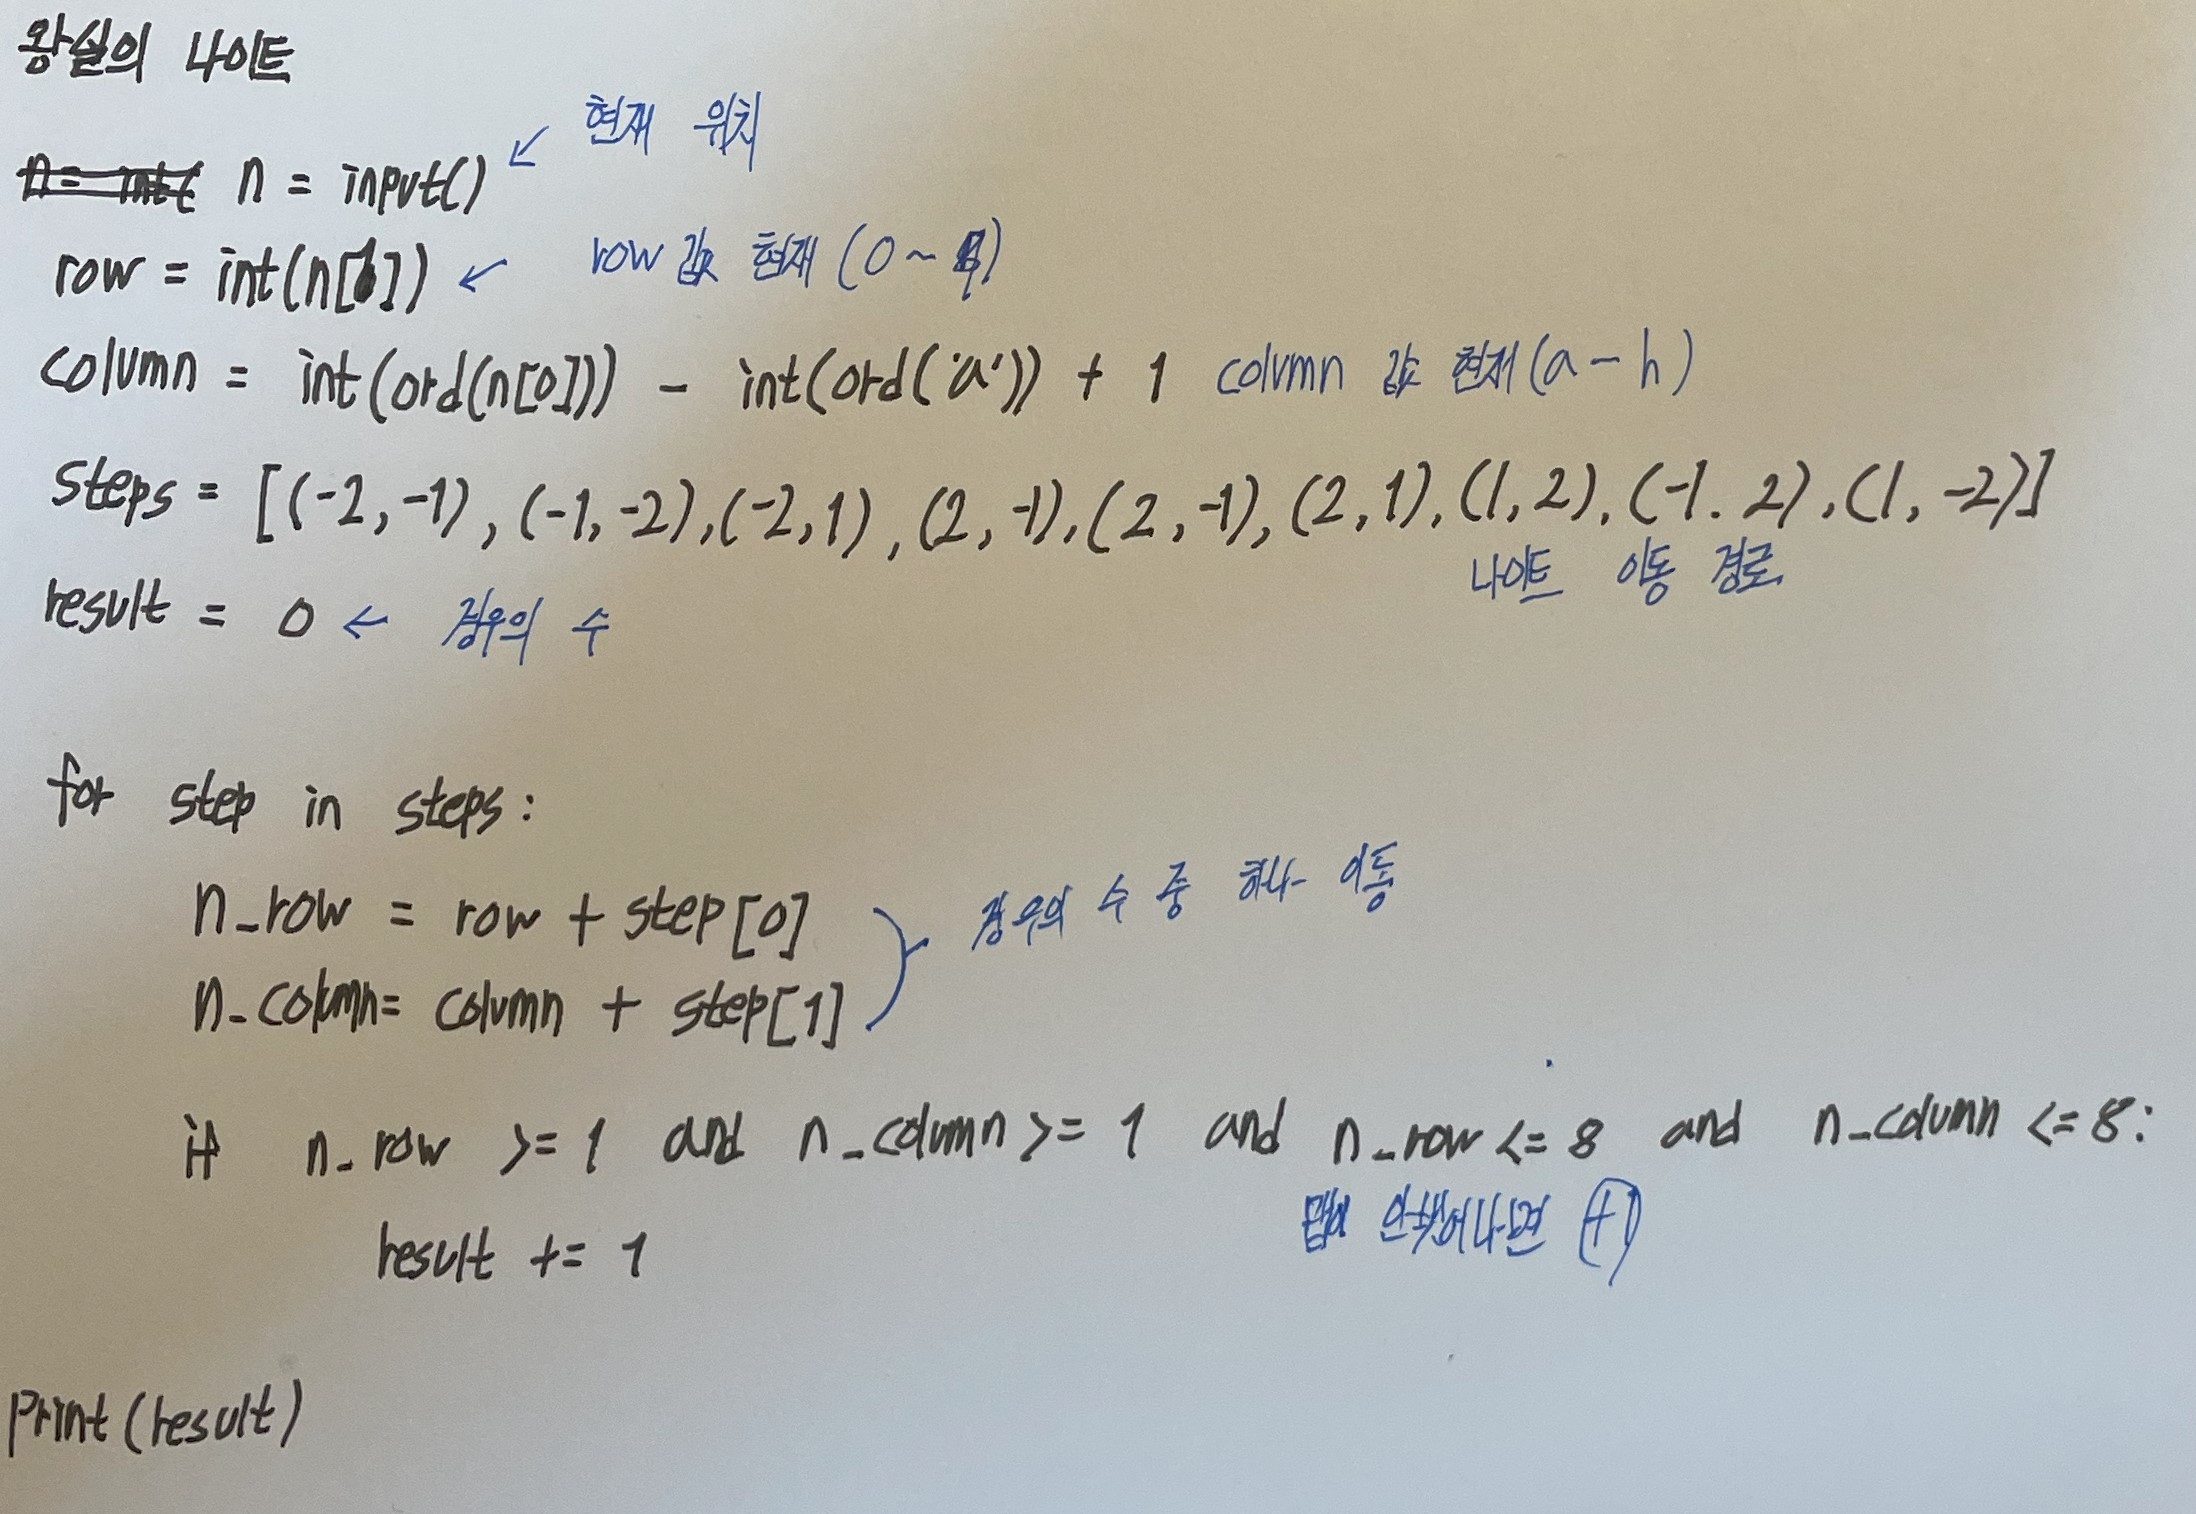 왕실의 나이트
n = input() ↙ 현재 위치
row = int(n[1]) ↙ row 값 현재 (0 ~ )
column = int(ord(n[0])) - int(ord('a')) + 1 column 값 현재 (a - h)
steps = [(-2, -1), (-1, -2), (-2, 1), (2, -1), (2, -1), (2, 1), (1, 2), (-1. 2), (1, -2)]
나이트 이동 경로
result = 0 ← 경우의 수
for step in steps:
n_row = row + step[0]
경우의 수 중 하나 이동
n_column = column + step[1]
if n_row >= 1 and n_column >= 1 and n_row <= 8 and n_column <= 8:
맵에 안벗어나면 +1
result += 1
print(result)